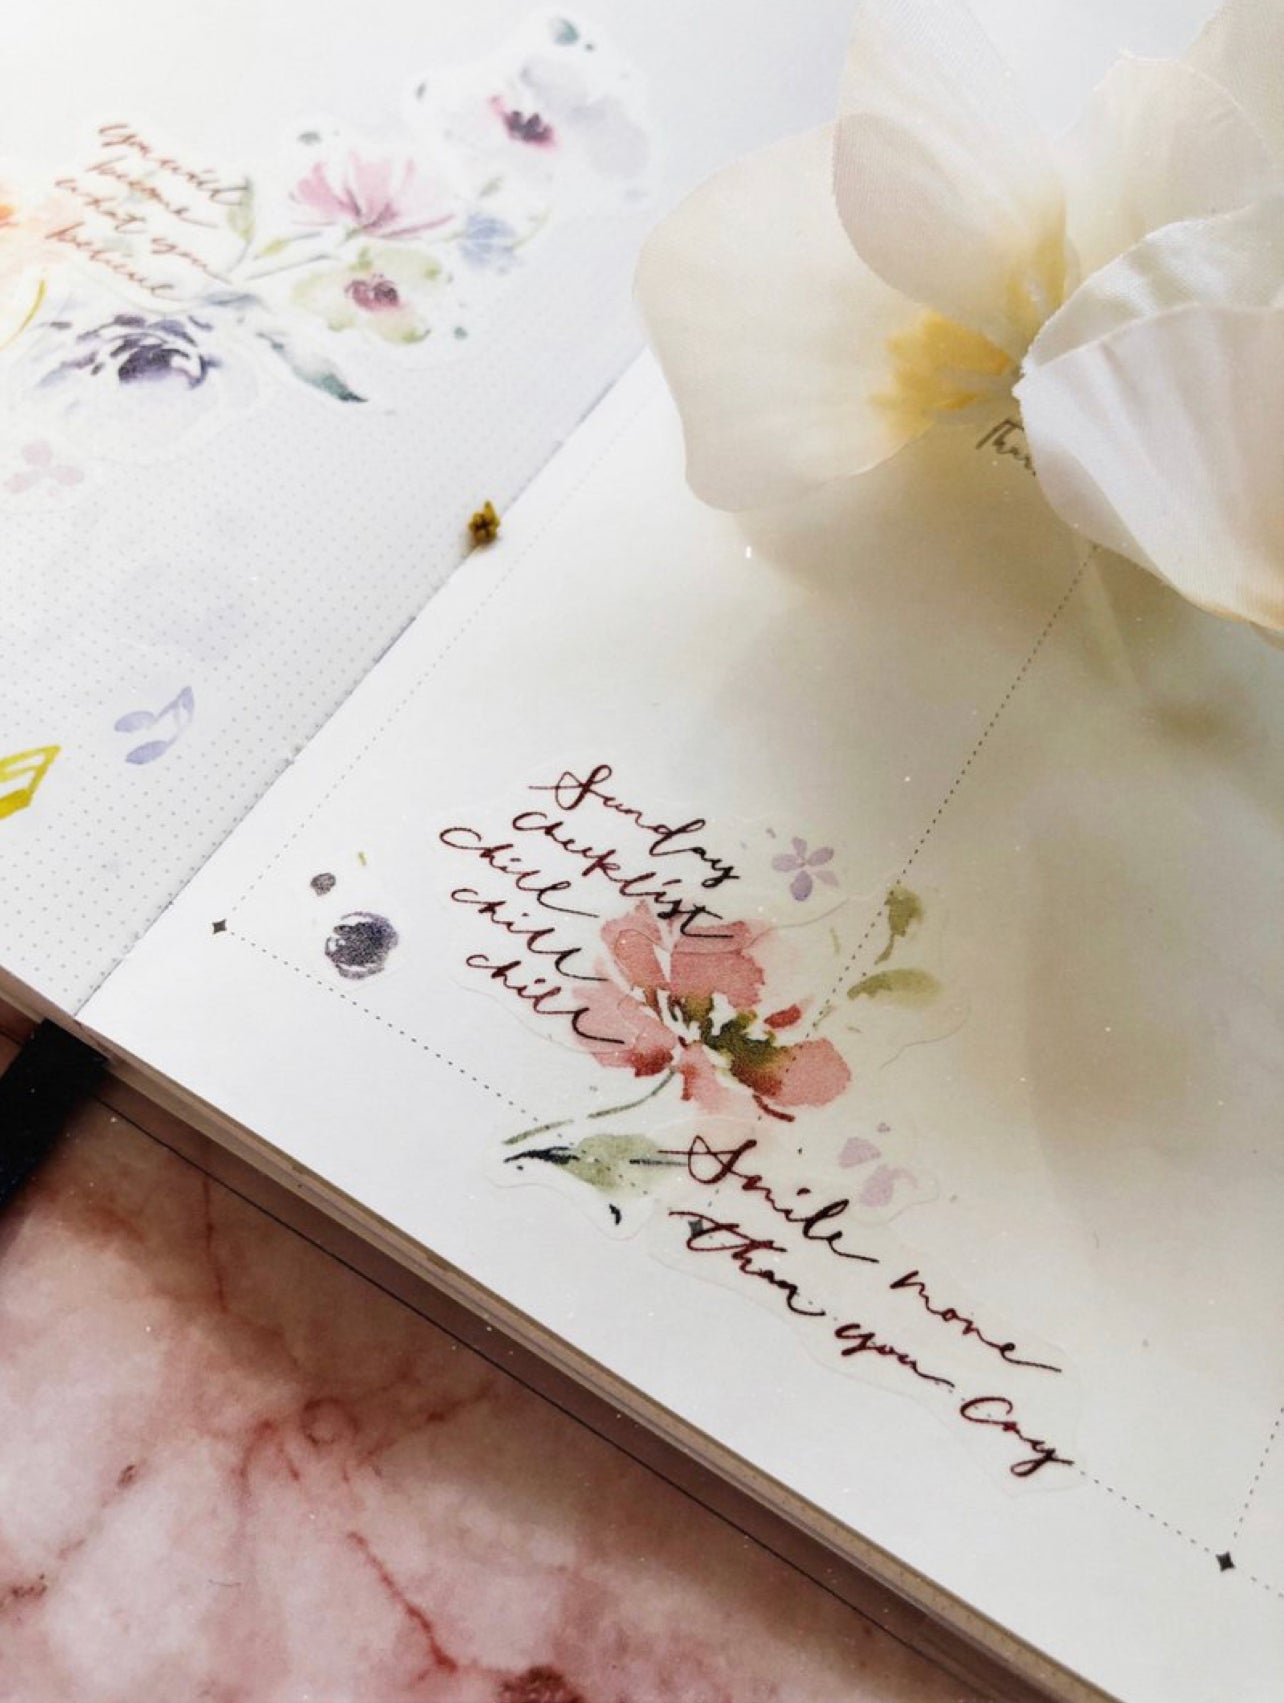 you will
become
what you
believe
Sunday
checklist
chill
chill
chill
Smile more
than you Cry